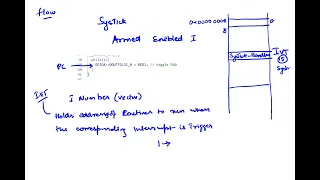 flow
SysTick
Armed Enabled I
0x00000000
0
8
PC
GPIOA->DOUTTGL31_0 = RED1; // toggle PA0
SysTick_Handler
IVT
15
Syst
IVT
I Number (vector)
Holds addresses of Routines to run when
the corresponding Interrupt is Trigger
1 →